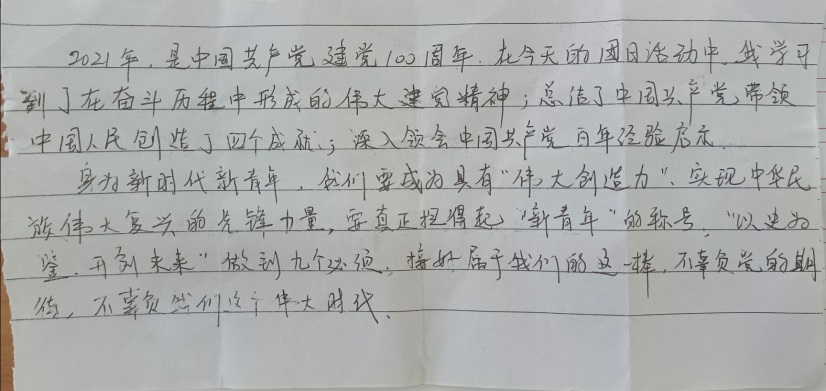 2021年,是中国共产党建党100周年.在今天的团日活动中,我学习
到了在奋斗历程中形成的伟大建党精神;总结了中国共产党带领
中国人民创造了四个成就;深入领会中国共产党百年经验启示.
身为新时代新青年,我们要成为具有"伟大创造力"、实现中华民
族伟大复兴的先锋力量,要真正担得起"新青年"的称号,"以史为
鉴,开创未来"做到九个必须,接好属于我们的这一棒,不辜负党的期
待,不辜负我们这个伟大时代.